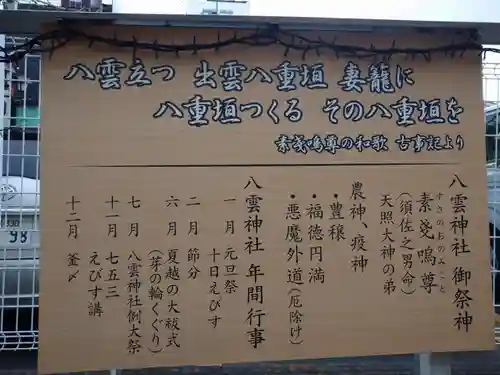 八雲立つ 出雲八重垣 妻籠に
八重垣つくる その八重垣を
素戔嗚尊の和歌 古事記より
八雲神社 御祭神
すさのおのみこと
素戔嗚尊
(須佐之男命)
天照大神の弟
農神、疫神
・豊穣
・福徳円満
・悪魔外道(厄除け)
八雲神社 年間行事
一月 元旦祭
十日えびす
二月 節分
六月 夏越の大祓式
(茅の輪くぐり)
七月 八雲神社例大祭
十一月 七五三
えびす講
十二月 釜〆
98